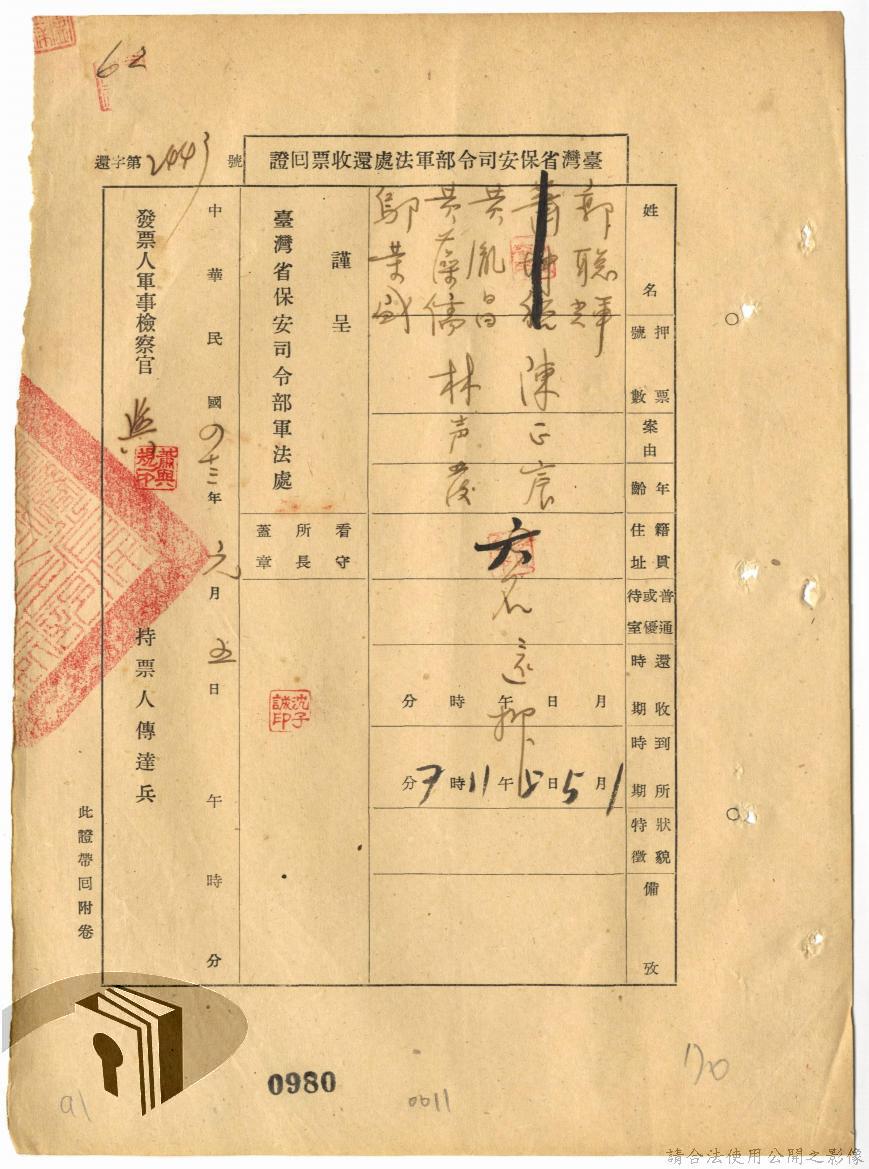 62
臺灣省保安司令部軍法處還收票回證
還字第2443號
姓名
郭聰輝
陳正宸
黃胤昌
黃藻儒
林声發
鄔葉盛
押票號數
案由
年齡
籍貫住址
普通或優待室
還收時期
月 日 午 時 分
六名還押
到所時期
1月5日上午11時 分
狀貌特徵
備攷
謹呈
臺灣省保安司令部軍法處
看守所長蓋章
沈子誠印
中華民國四十三年元月五日 午 時 分
發票人軍事檢察官
蕭與規印
持票人傳達兵
此證帶回附卷
0980
0011
91
170
請合法使用公開之影像